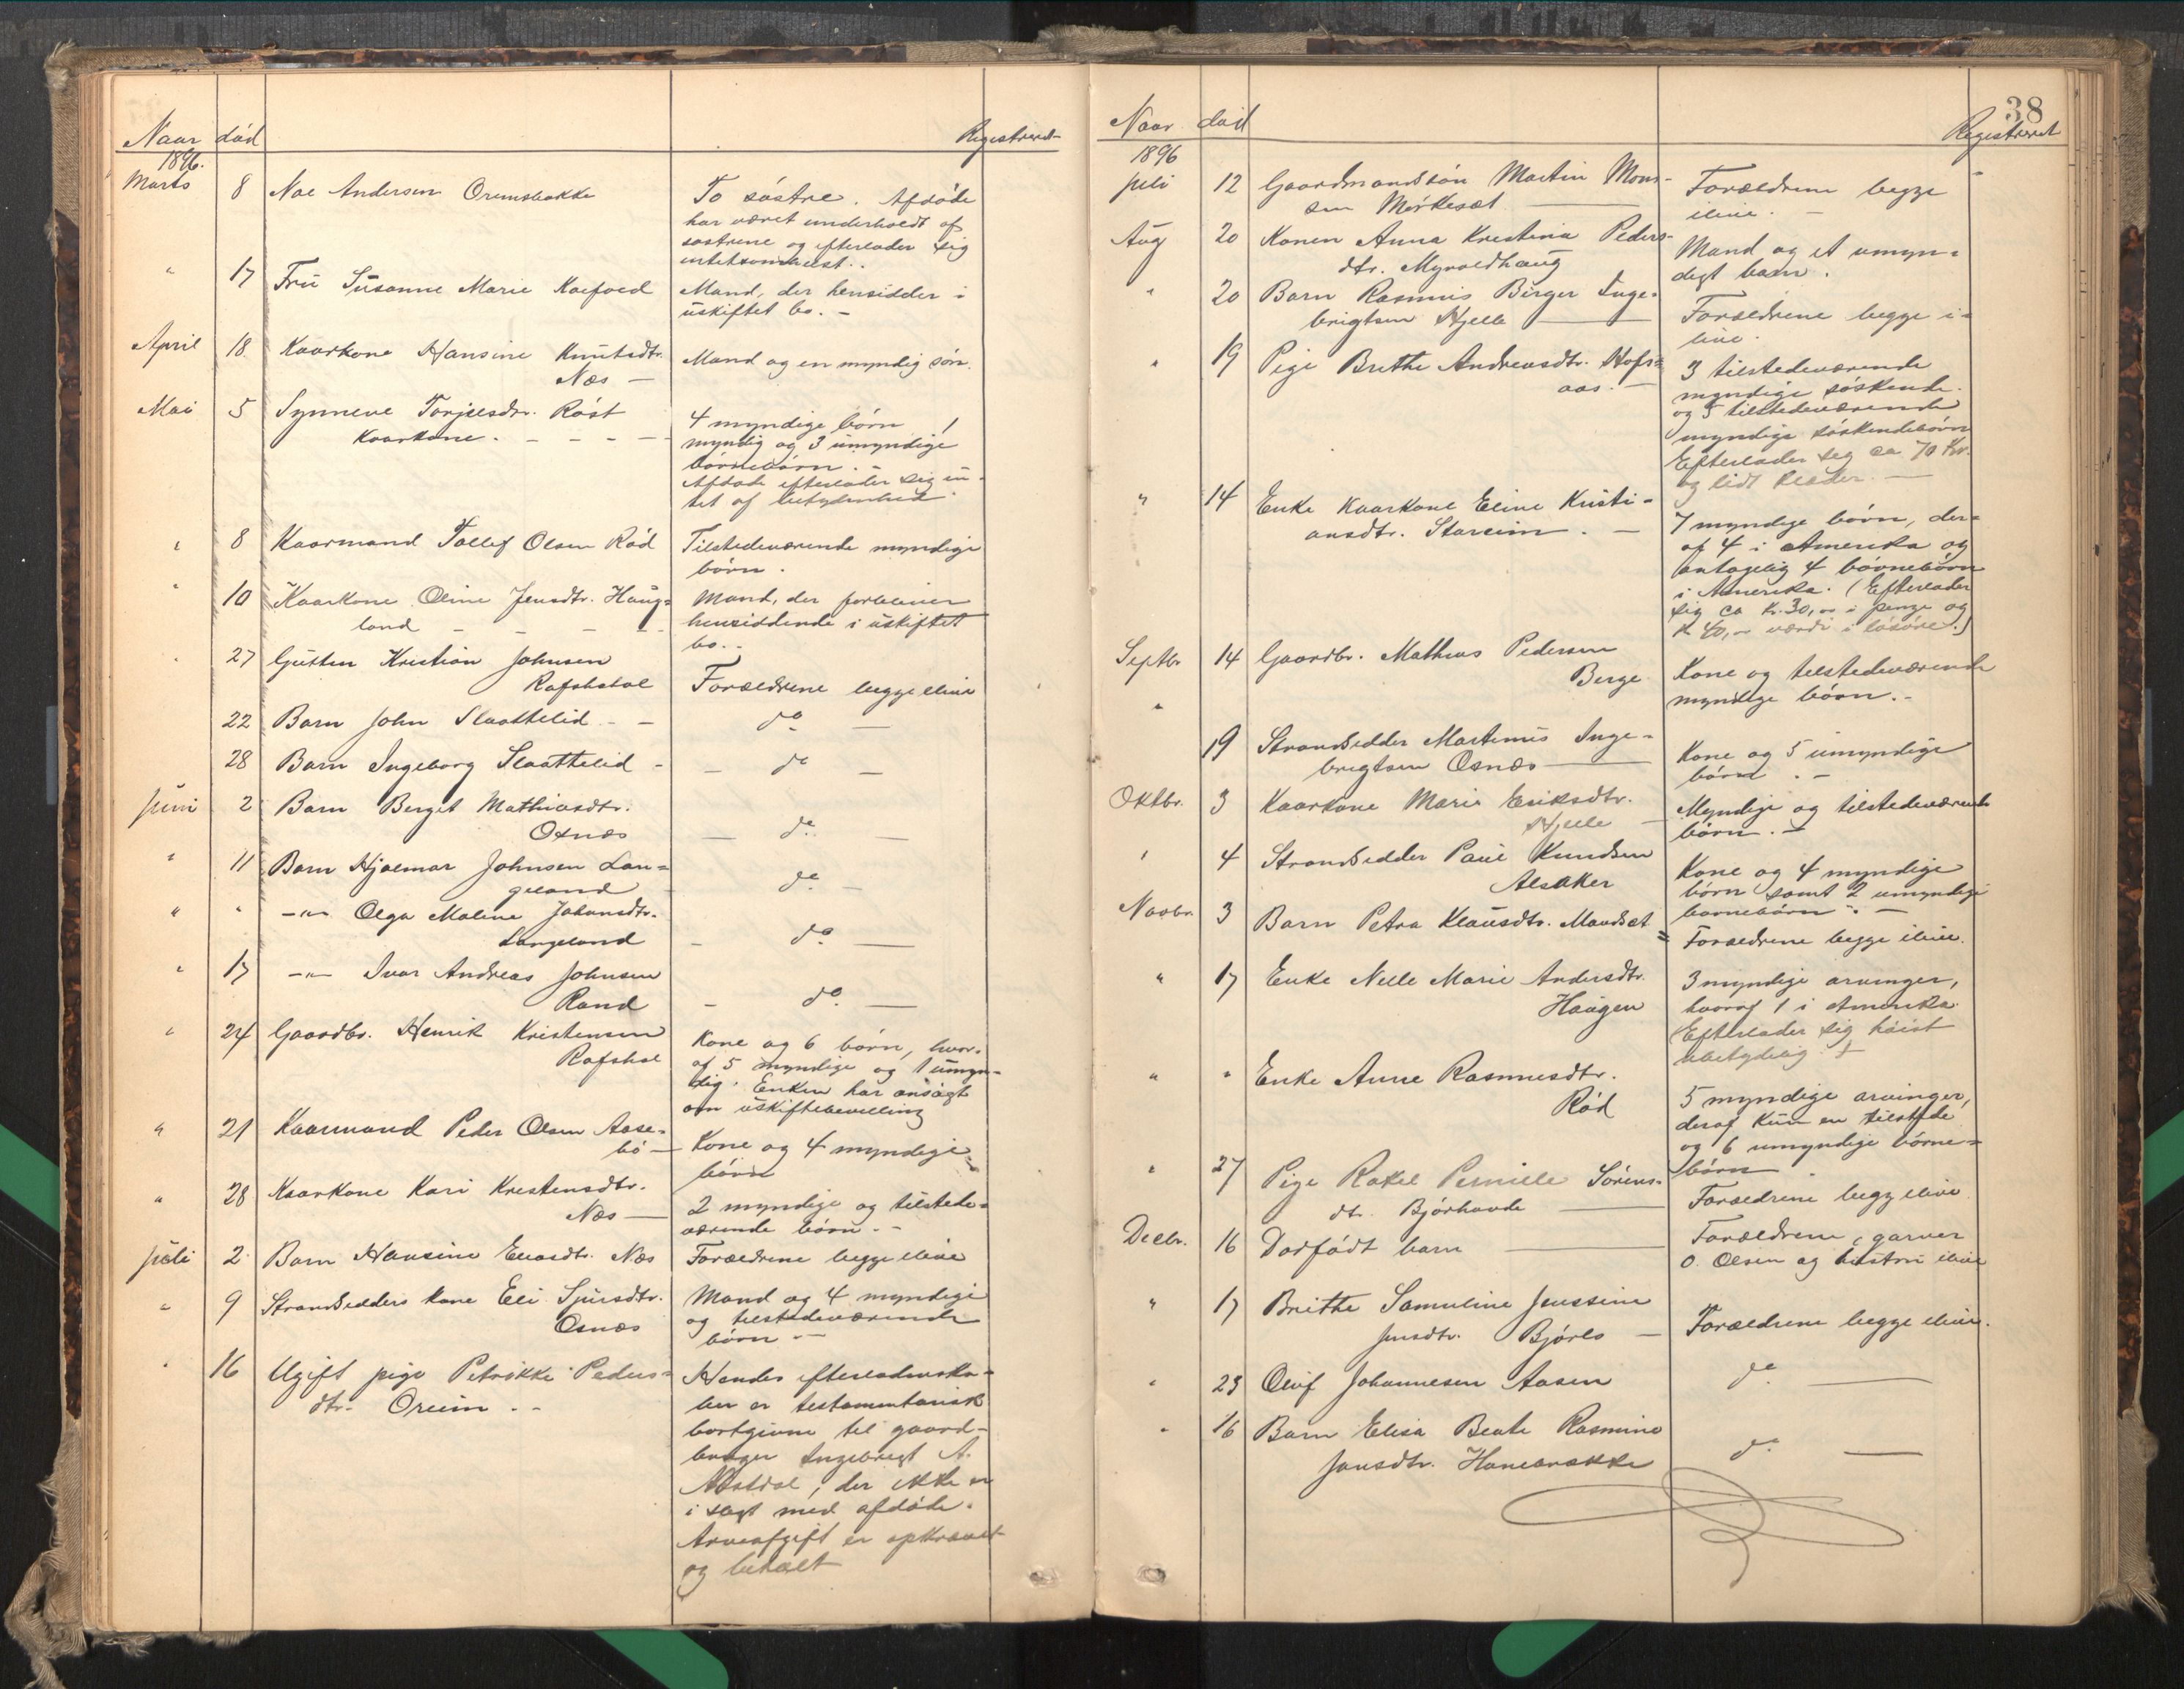 Naar død
Registreret
1896.
Marts 8 Noe Andersen Oremsbakke
To søstre. Afdøde
har været underholdt af
søstrene og efterlader sig
intetsomhelst.
" 17 Fru Susanne Marie Koefoed
Mand, der hensidder i
uskiftet bo. –
April 18 Kaarkone Hansine Knutsdtr.
Næs –
Mand og en myndig søn.
Mai 5 Synneve Torjusdtr. Røst
Kaarkone. – – – –
4 myndige børn 1
myndig og 3 umyndige
børnebørn. –
Afdøde efterlader sig in-
tet af betydenhed.
" 8 Kaarmand Tollef Olsen Rød
Tilstedeværende myndige
børn.
" 10 Kaarkone Oline Jensdtr. Haug=
land – – – –
Mand, der forbliver
hensiddende i uskiftet
bo. –
" 27 Gutten Kristian Johnsen
Rafshatol
Forældrene begge ilive
22 Barn John Slaattelid – –
do –
28 Barn Ingeborg Slaattelid –
– do –
Juni 2 Barn Berget Mathiasdtr.
Osnæs
– do. –
" 11 Barn Hjalmar Johnsen Lan=
geland
– do. –
" " –"– Olga Maline Johansdtr.
Langeland
– do. –
" 17 –"– Ivar Andreas Johnsen
Rand
– do. –
" 24 Gaardbr. Henrik Kristensen
Rafshol
Kone og 6 børn, hvor-
af 5 myndige og 1 umyn-
dig. Enken har ansøgt
om uskiftebevilling
" 21 Kaarmand Peder Olsen Aase-
bø –
Kone og 4 myndige
børn
" 28 Kaarkone Kari Kristensdtr.
Næs –
2 myndige og tilstede=
værende børn. –
Juli 2 Barn Hansine Eliasdtr. Næs
Forældrene begge ilive
" 9 Strandsidders kone Eli Sjursdtr.
Osnæs
Mand og 4 myndige
og tilstedeværende
børn –
" 16 Ugift pige Petrikke Peders=
dtr. Oreim . –
Hendes efterladenska-
ber er testamentarisk
bortgivne til gaard-
bruger Ingebrigt A.
Næstdal, der ikke er
i slegt med afdøde.
Arveafgift er opkrævet
og betalt
38
Naar død
Registreret
1896
Juli 12 Gaardmandssøn Martin Mons-
sen Mørkesæt –
Forældrene begge
ilive. –
Aug 20 Konen Anna Kristina Peders-
dtr. Myroldhaug
Mand og et umyn=
digt barn.
" 20 Barn Rasmus Birger Inge-
brigtsen Hjelle –
Forældrene begge i=
live.
" 19 Pige Brithe Andreasdtr. Hofs=
aas. –
3 tilstedeværende
myndige søskende
og 5 tilstedeværende
myndige søskendebørn
Efterlader seg ca 70 Kr.
og lidt klæder. –
" 14 Enke Kaarkone Eline Kristi-
ansdtr. Stareim . –
7 myndige børn, der=
af 4 i Amerika og
antagelig 4 børnebørn
i Amerika. (Efterlader
sig ca Kr. 30,– i penge og
K 40,– værdi i løsøre.)
Septbr. 14 Gaardbr. Mathias Pedersen
Berge
Kone og tilstedeværende
myndige børn. –
" 19 Strandsidder Martinus Inge-
brigtsen Osnæs –
Kone og 5 umyndige
børn . –
Oktbr. 3 Kaarkone Marie Eriksdtr.
Hjelle –
Myndige og tilstedeværende
børn. –
" 4 Strandsidder Paul Knudsen
Alsaker
Kone og 4 myndige
børn samt 2 umyndige
børnebørn. –
Novbr. 3 Barn Petra Klausdtr. Maurset =
Forældrene begge ilive.
" 17 Enke Nelle Marie Andersdtr.
Haugen
3 myndige arvinger,
hvoraf 1 i Amerika.
Efterlader sig høist
ubetydelig.
" " Enke Anne Rasmusdtr.
Rød
5 myndige arvinger,
deraf kun en tilstede
og 6 umyndige børne=
børn.
" 27 Pige Rakel Pernille Sørens-
dtr. Bjørhovde –
Forældrene begge ilive.
Decbr. 16 Dødfødt barn –
Forældrene, garver
O. Olsen og hustru ilive
" 17 Brithe Samuline Jenssine
Jensdtr. Bjørlo –
Forældrene begge ilive.
" 23 Oluf Johannesen Aasen
do. –
" 16 Barn Elisa Beate Rasmine
Jansdtr. Hanebrække
do –